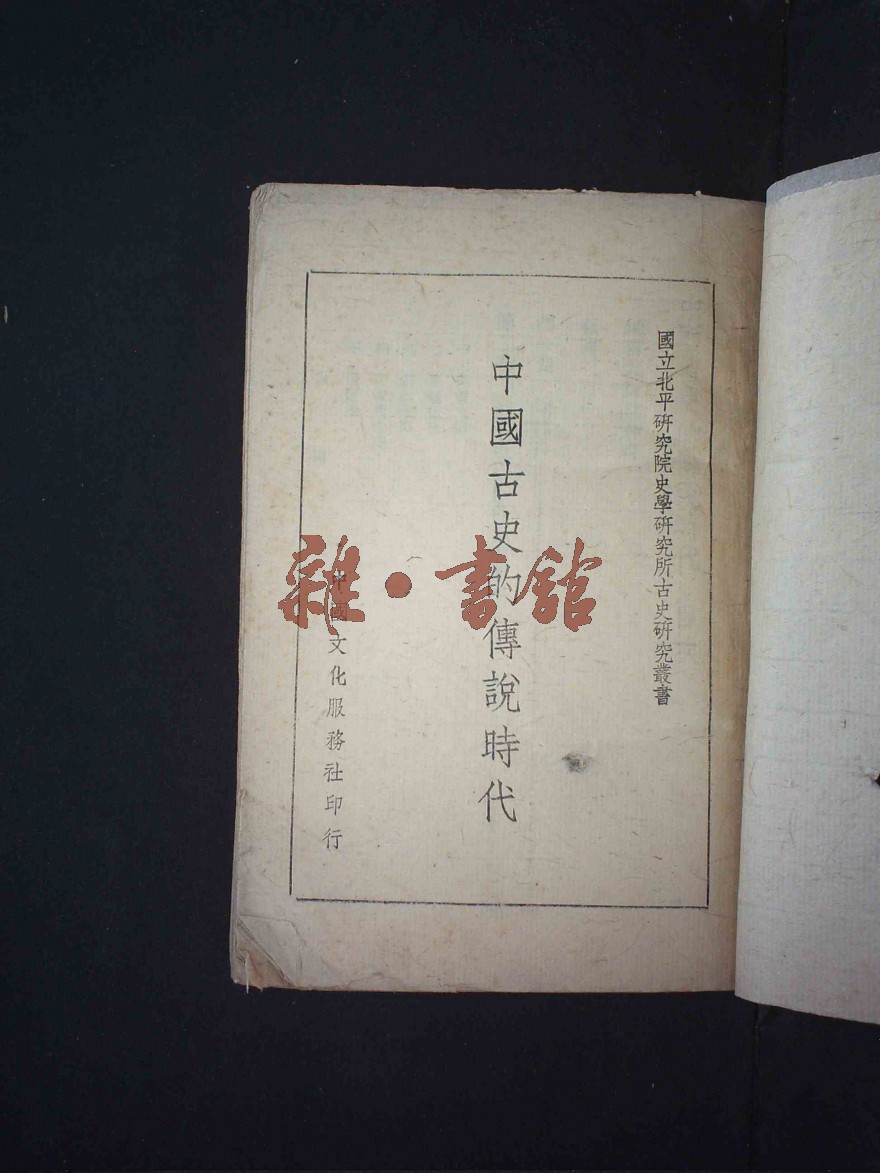 國立北平硏究院史學硏究所古史硏究叢書
中國古史的傳說時代
中國文化服務社印行
雜·書館